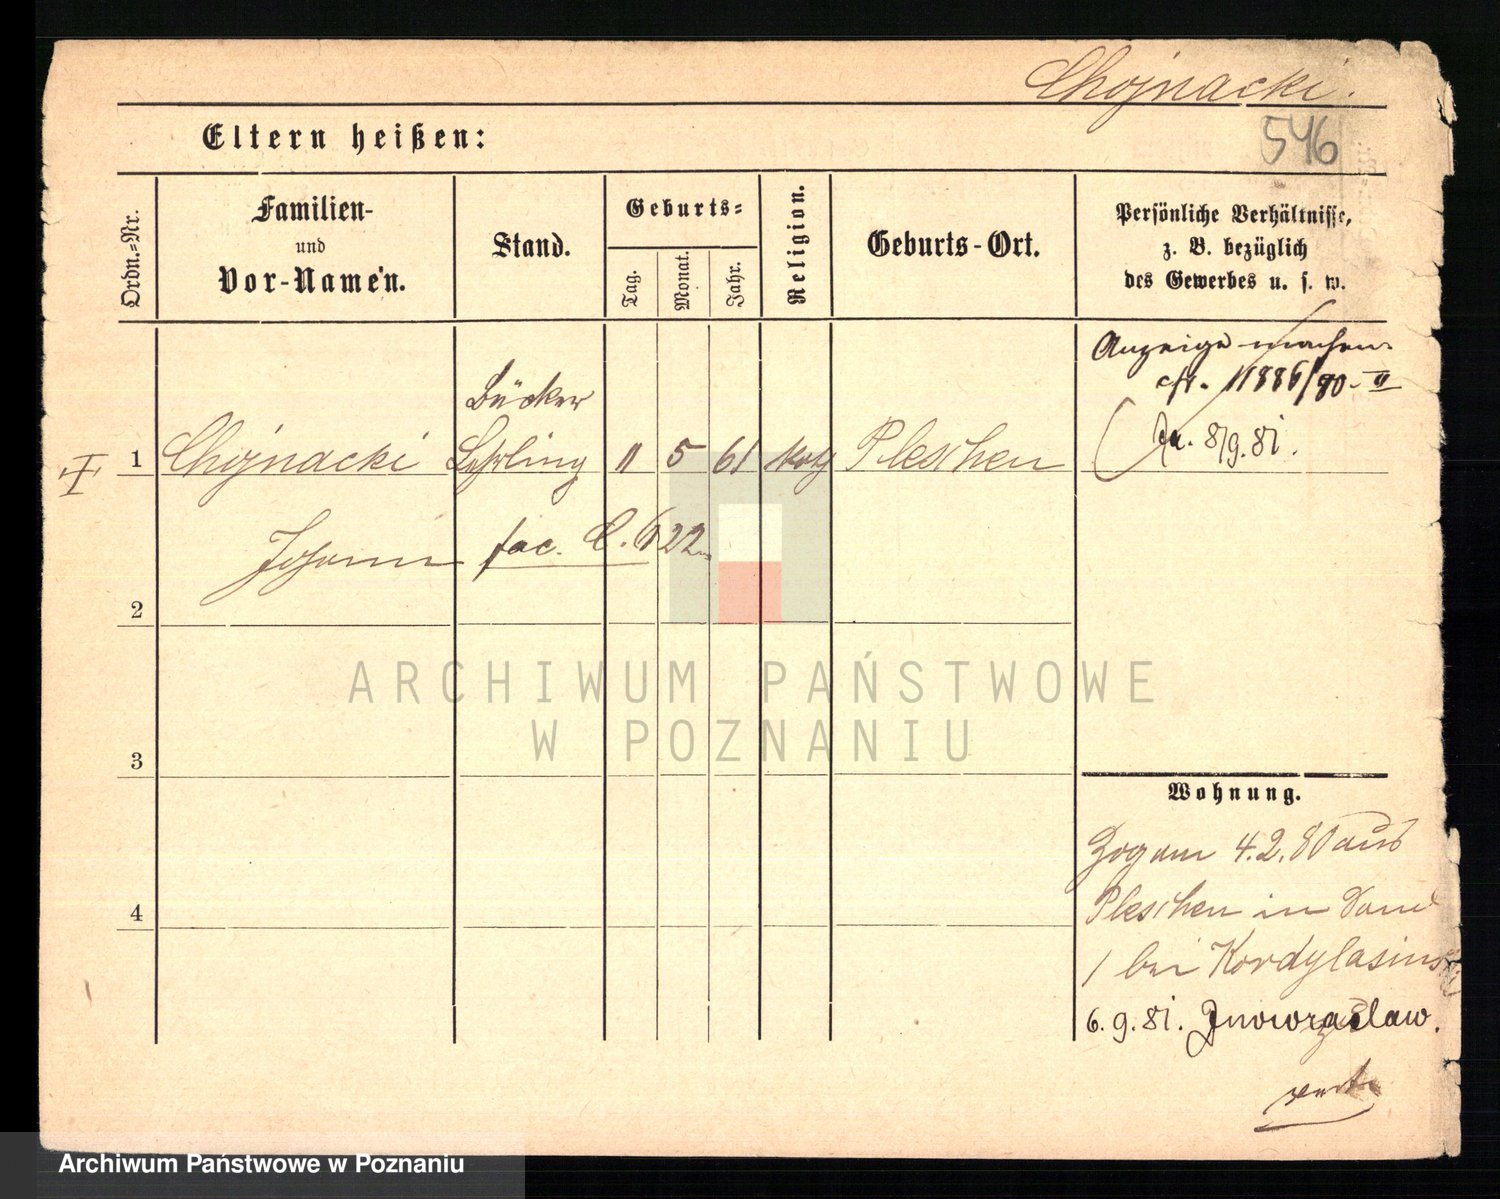 Chojnacki.
Eltern heißen:
546
Ordn.-Nr.
Familien-
und
Vor-Namen.
Stand.
Geburts-
Tag.
Monat.
Jahr.
Religion.
Geburts-Ort.
Persönliche Verhältnisse,
z. B. bezüglich
des Gewerbes u. s. w.
Anzeige machen
cfr. 11886/80-II
8/9.81.
Bäcker
1 Chojnacki Lehrling 11 5 61 kath Pleschen
Johann fac. C. 6 22
2
3
4
Wohnung.
Zog am 4.2.80 aus
Pleschen in
1 bei Kordylasins
6.9.81. Inowraclaw.
vert.
ARCHIWUM PAŃSTWOWE
W POZNANIU
Archiwum Państwowe w Poznaniu